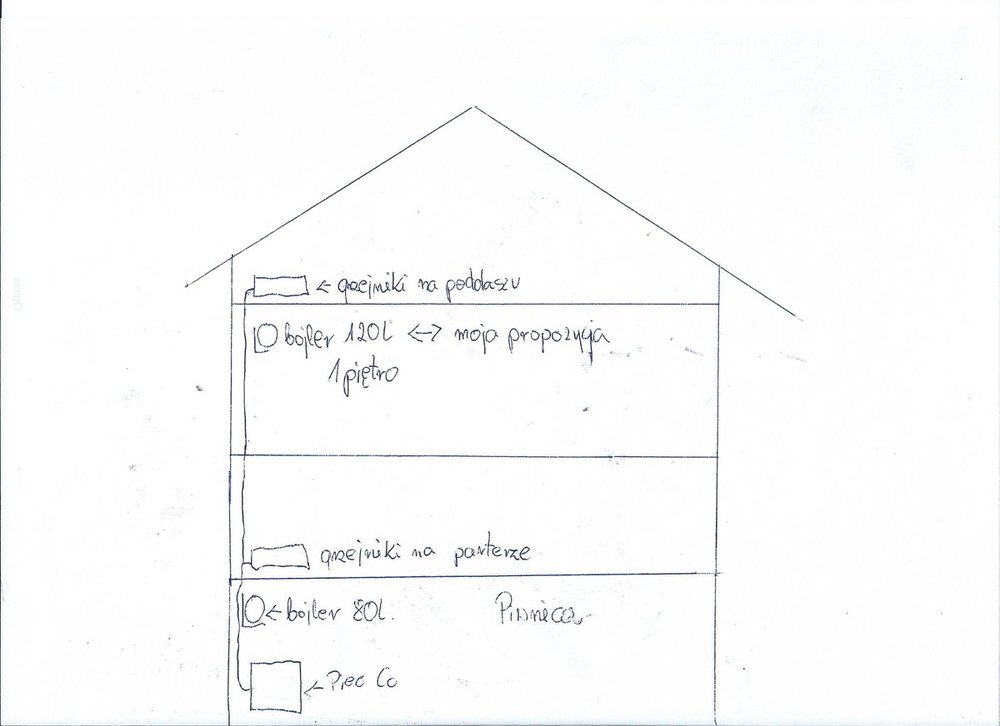 ← grzejniki na poddaszu
bojler 120L <-> moja propozycja
1 piętro
grzejniki na parterze
← bojler 80L.
Piwnica
← Piec Co